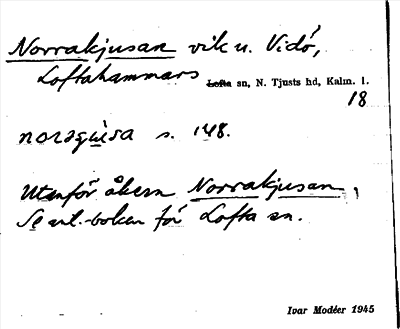 Norrakjusan vik u. Vidö,
Loftahammars Lofta sn, N. Tjusts hd, Kalm. l.
18
norəgùsa s. 148.
Utanför åkern Norrakjusan,
Se ant.-boken för Lofta sn.
Ivar Modéer 1945